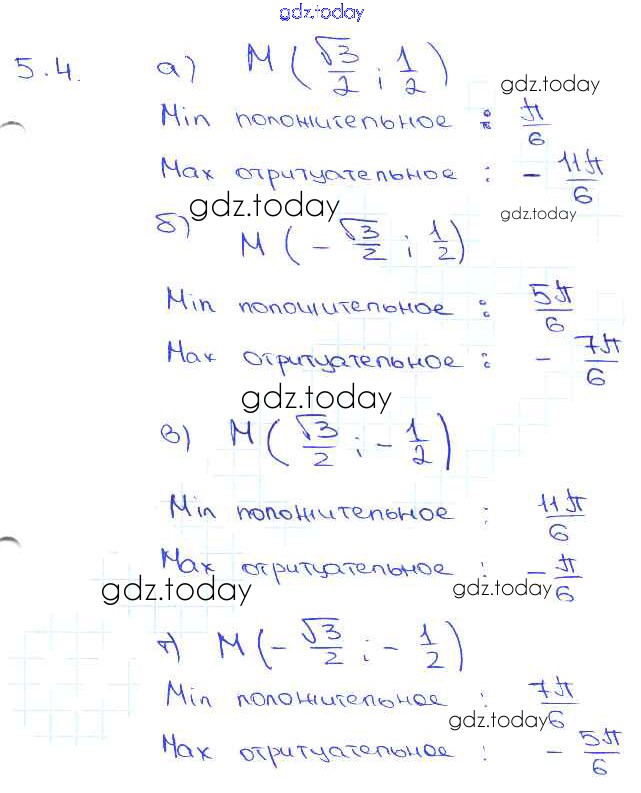 gdz.today
5.4. а) M (√3/2 ; 1/2)
gdz.today
Min положительное : π/6
Max отритуательное : - 11π/6
gdz.today
gdz.today
б) M (- √3/2 ; 1/2)
Min положительное : 5π/6
Max отритуательное : - 7π/6
gdz.today
в) M (√3/2 ; - 1/2)
Min положительное : 11π/6
Max отритуательное : - π/6
gdz.today
gdz.today
г) M (- √3/2 ; - 1/2)
Min положительное : 7π/6
gdz.today
Max отритуательное : - 5π/6